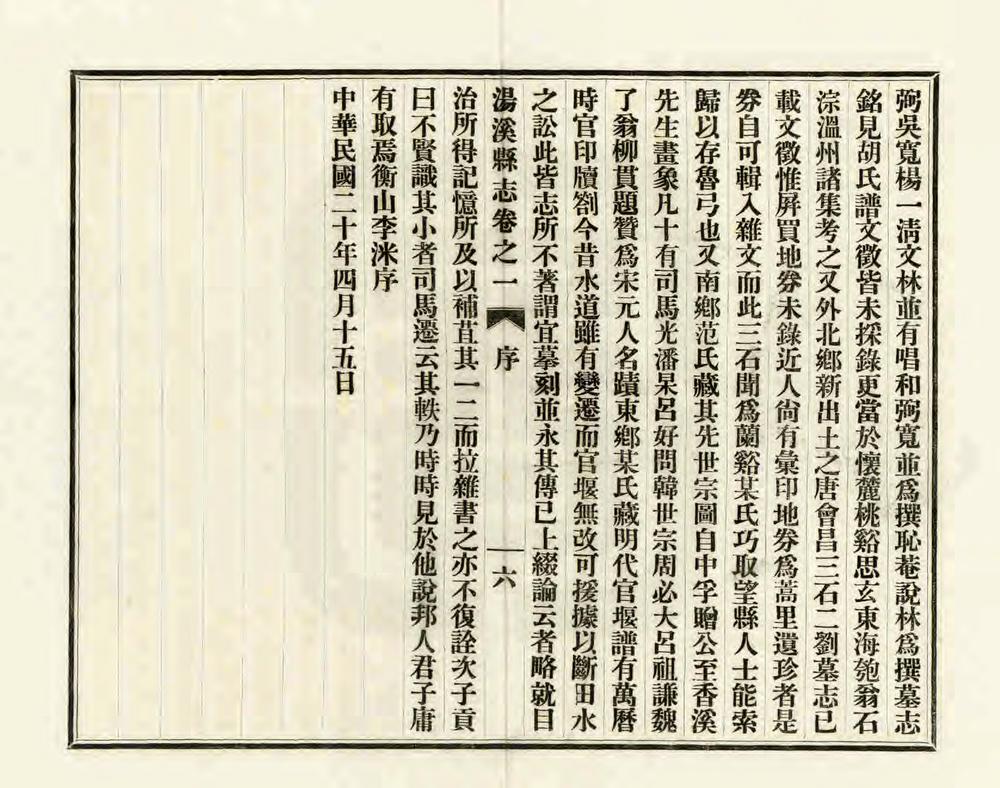 弼吳寬楊一淸文林並有唱和弼寬並爲撰恥菴說林爲撰墓志
銘見胡氏譜文徵皆未採錄更當於懷麓桃谿思玄東海匏翁石
淙溫州諸集考之又外北鄕新出土之唐會昌三石二劉墓志已
載文徵惟屏買地劵未錄近人尙有彙印地劵爲蒿里遺珍者是
劵自可輯入雜文而此三石聞爲蘭谿某氏巧取望縣人士能索
歸以存魯弓也又南鄕范氏藏其先世宗圖自中孚贈公至香溪
先生畫象凡十有司馬光潘杲呂好問韓世宗周必大呂祖謙魏
了翁柳貫題贊爲宋元人名蹟東鄕某氏藏明代官堰譜有萬曆
時官印牘劄今昔水道雖有變遷而官堰無改可援據以斷田水
之訟此皆志所不著謂宜摹刻並永其傳已上綴論云者略就目
湯溪縣志卷之一 序 一六
治所得記憶所及以補苴其一二而拉雜書之亦不復詮次子貢
曰不賢識其小者司馬遷云其軼乃時時見於他說邦人君子庸
有取焉衡山李洣序
中華民國二十年四月十五日